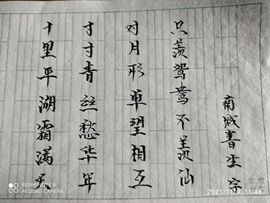 十里平湖霜满天
寸寸青丝愁华年
对月形单望相互
只羡鸳鸯不羡仙
南城書字
AI QUAD CAMERA
11:46